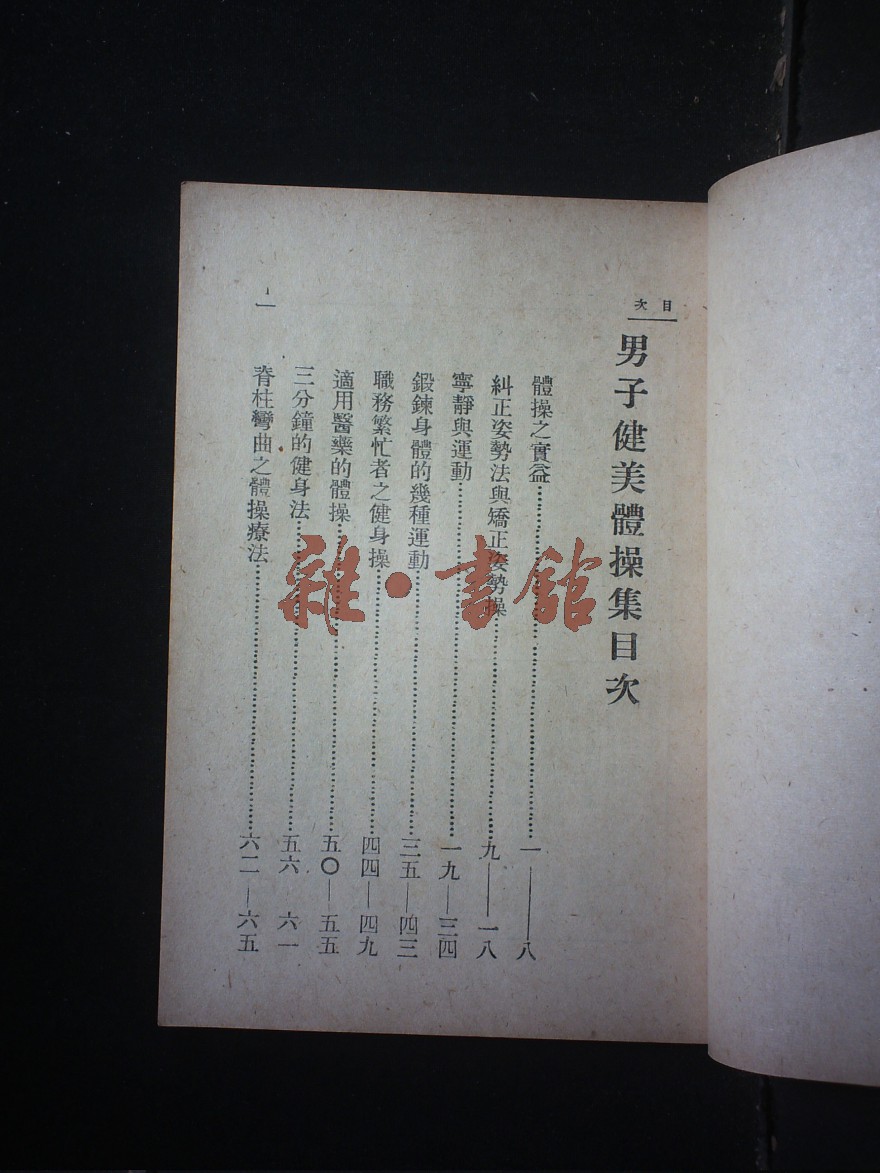 目次
男子健美體操集目次
體操之實益……一——八
糾正姿勢法與矯正姿勢操……九——一八
寧靜與運動……一九—三四
鍛鍊身體的幾種運動……三五—四三
職務繁忙者之健身操……四四—四九
適用醫藥的體操……五〇—五五
三分鐘的健身法……五六 六一
脊柱彎曲之體操療法……六二—六五
一
雜·書館